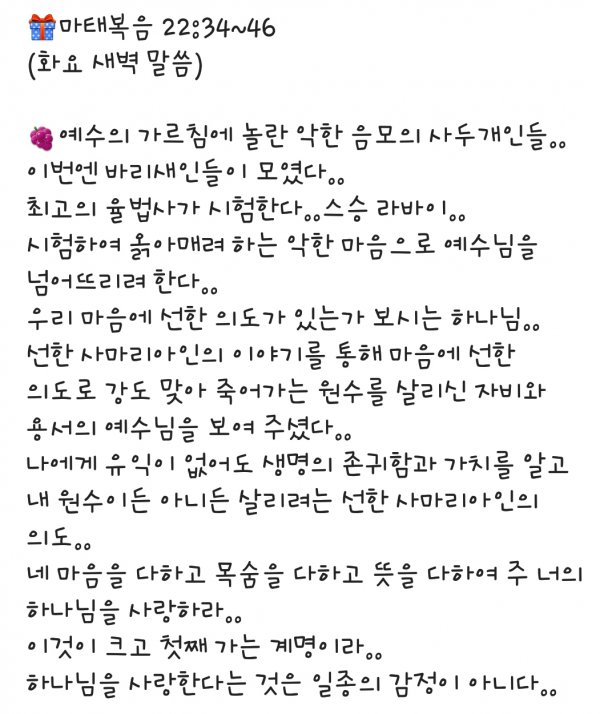 🎁마태복음 22:34~46
(화요 새벽 말씀)
🍇예수의 가르침에 놀란 악한 음모의 사두개인들。。
이번엔 바리새인들이 모였다。。
최고의 율법사가 시험한다。。스승 라바이。。
시험하여 옭아매려 하는 악한 마음으로 예수님을
넘어뜨리려 한다。。
우리 마음에 선한 의도가 있는가 보시는 하나님。。
선한 사마리아인의 이야기를 통해 마음에 선한
의도로 강도 맞아 죽어가는 원수를 살리신 자비와
용서의 예수님을 보여 주셨다。。
나에게 유익이 없어도 생명의 존귀함과 가치를 알고
내 원수이든 아니든 살리려는 선한 사마리아인의
의도。。
네 마음을 다하고 목숨을 다하고 뜻을 다하여 주 너의
하나님을 사랑하라。。
이것이 크고 첫째 가는 계명이라。。
하나님을 사랑한다는 것은 일종의 감정이 아니다。。